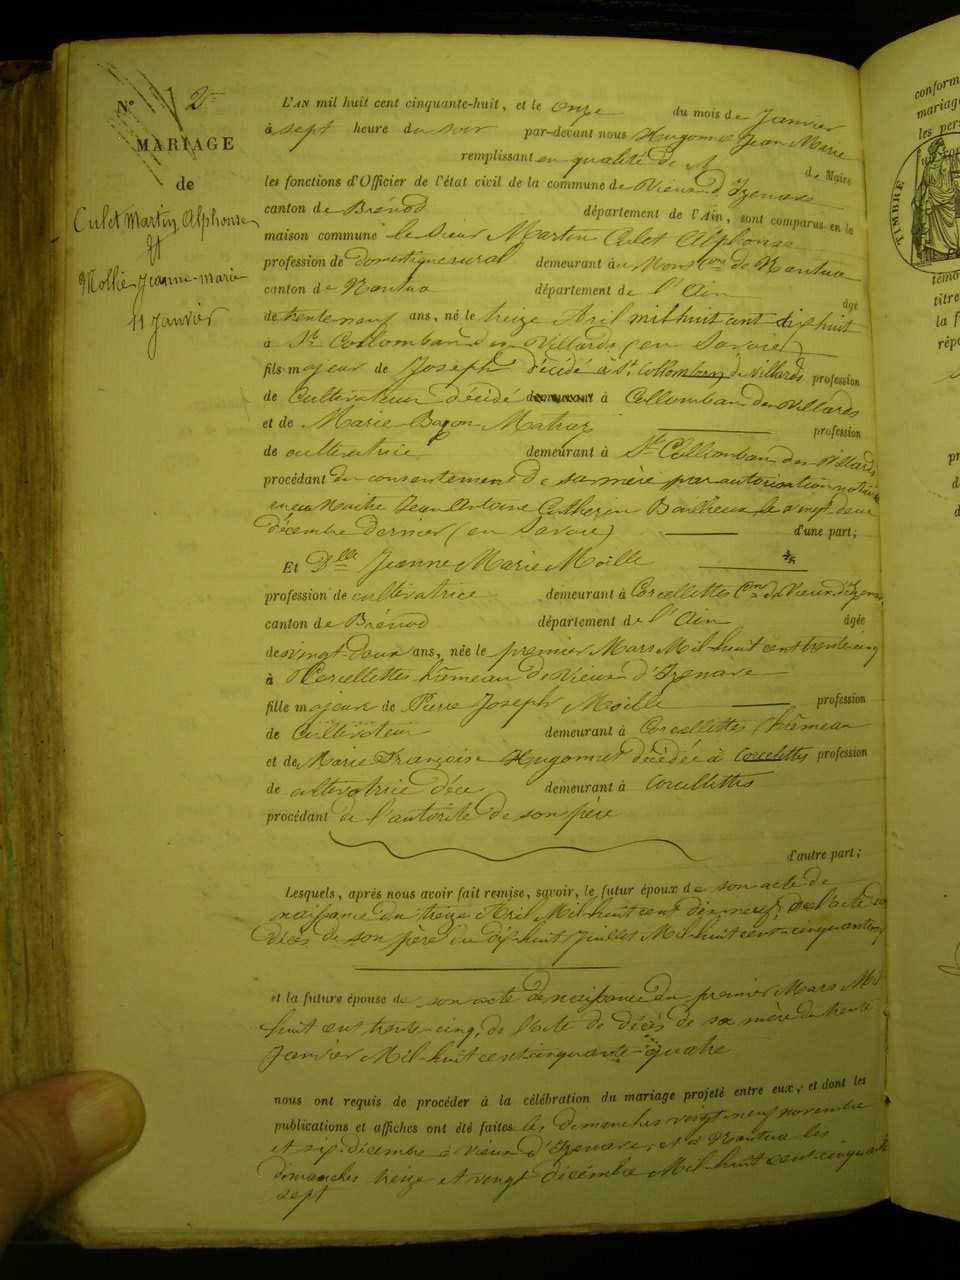 N° 2
MARIAGE
de
Culet Martin Alphonse
Et
Mollie Jeanne-marie
11 Janvier
L'AN mil huit cent cinquante-huit, et le onze du mois de Janvier
à sept heure du soir par-devant nous Hugonnet Jean Marie
remplissant en qualité de de Maire
les fonctions d'Officier de l'état civil de la commune de Vieux d'Izenave
canton de Brénod département de l'Ain, sont comparus en la
maison commune le sieur Martin Culet Alphonse
profession de domestique rural demeurant au Mont Cne de Nantua
canton de Nantua département de l'Ain âgé
de trente neuf ans, né le treize Avril mil huit cent dix huit
à St Collomban des Villards (en Savoie)
fils majeur de Joseph décédé à St Collomban de villards profession
de Cultivateur décédé à Collomban des Villards
et de Marie Matraz profession
de cultivatrice demeurant à St Collomban des Villards
procédant du consentement de sa mère par autorisation
Maitre Jean Antoine le vingt-deux
décembre dernier (en Savoie) d'une part;
Et Dlle Jeanne Marie Moille
profession de cultivatrice demeurant à Corcellettes Cne de Vieux d'Izenave
canton de Brénod département de l'Ain âgée
de vingt-deux ans, née le premier Mars Mil-huit cent trente-cinq
à Corcellettes hâmeau de Vieux d'Izenave
fille majeure de Pierre Joseph Moille profession
de Cultivateur demeurant à Corcellettes (hâmeau
et de Marie Françoise Hugonnet décédée à Corcelettes profession
de cultivatrice déce demeurant à Corcellettes
procédant de l'autorité de son père
d'autre part;
Lesquels, après nous avoir fait remise, savoir, le futur époux de son acte de
naissance du treize Avril Mil-huit cent dix neuf; de l'acte de
décès de son père du dix-huit Juillet Mil-huit cent-cinquante
et la future épouse de son acte de naissance du premier Mars Mil
huit cent trente-cinq, de l'acte de décès de sa mère du trente
Janvier Mil-huit cent cinquante-quatre
nous ont requis de procéder à la célébration du mariage projeté entre eux, et dont les
publications et affiches ont été faites les dimanches vingt-neuf novembre
et six décembre à vieux d'Izenave, et à Nantua les
dimanches treize et vingt décembre Mil-huit cent-cinquante
sept
TIMBRE
conform
mariage
les per
témo
titre
la f